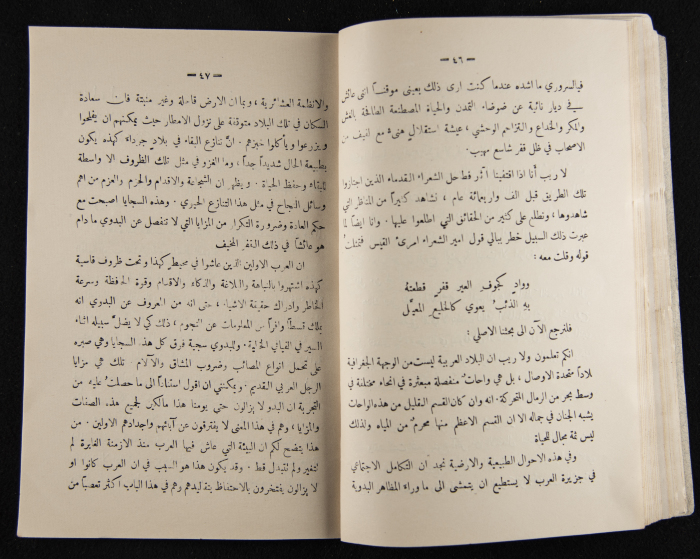 — ٤٦ —
فيالسروري ما اشده عندما كنت ارى ذلك بعيني موقناً انني عائش
في ديار نائية عن ضوضاء التمدن والحياة المصطنعة الطافحة بالغش
والمكر والخداع والتزاحم الوحشي ، عيشة استقلال هنيء مع لفيف من
الاصحاب في ظل قفر شاسع مهيب.
لا ريب أنا اذا اقتفينا آثار فطاحل الشعراء القدماء الذين اجتازوا
تلك الطريق قبل الف واربعمائة عام ، نشاهد كثيراً من المناظر التي
شاهدوها ، ونطلع على كثير من الحقائق التي اطلعوا عليها. وانا ايضاً لما
عبرت ذلك السبيل خطر ببالي قول امير الشعراء امرئ القيس فتمثلت
قوله وقلت معه :
ووادٍ كجوف العير قفرٍ قطعته
به الذئب يعوي كالخليع المعيَّل
فلنرجع الآن الى مبحثنا الاصلي :
انكم تعلمون ولا ريب ان البلاد العربية ليست من الوجهة الجغرافية
بلاداً متحدة الاوصال ، بل هي واحات منفصلة مبعثرة في انحاء مختلفة في
وسط بحر من الرمال المتحركة. انه وان كان القسم القليل من هذه الواحات
يشبه الجنان في جماله الا ان القسم الاعظم منها محروم من المياه ولذلك
ليس ثمة مجال للحياة
وفي هذه الاحوال الطبيعية والارضية نجد ان التكامل الاجتماعي
في جزيرة العرب لا يستطيع ان يتمشى الى ما وراء المظاهر البدوية
— ٤٧ —
والانظمة العشائرية ، وبما ان الارض قاحلة وغير منبتة فان سعادة
السكان في تلك البلاد متوقفة على نزول الامطار حيث يمكنهم ان يفلحوا
ويزرعوا ويأكلوا خبزهم. انَّ تنازع البقاء في بلاد جرداء كهذه يكون
بطبيعة الحال شديداً جداً ، وما الغزو في مثل تلك الظروف الا واسطة
للبقاء وحفظ الحياة. ويظهر ان الشجاعة والاقدام والحزم والعزم من اهم
وسائل النجاح في مثل هذا التنازع الحيوي. وهذه السجايا اصبحت مع
حكم العادة وضرورة التكرار من المزايا التي لا تنفصل عن البدوي ما دام
هو عائشاً في ذلك القفر المخيف
ان العرب الاولين الذين عاشوا في محيط كهذا وتحت ظروف قاسية
كهذه اشتهروا بالنباهة والبلاغة والذكاء والاقدام وقوة الحافظة وسرعة
الخاطر وادراك حقيقة الاشياء ، حتى انه من المعروف عن البدوي انه
يملك قسطاً وافراً من المعلومات عن النجوم ، ذلك كي لا يضلَّ سبيله اثناء
السير في الفيافي الخالية. وللبدوي سجية فوق كل هذه السجايا وهي صبره
على تحمل انواع المصائب وضروب المشاق والآلام. تلك هي مزايا
الرجل العربي القديم. ويمكنني ان اقول استناداً الى ما حصلت عليه من
التجربة ان البدو لا يزالون حتى يومنا هذا مالكين لجميع هذه الصفات
والمزايا ، وهم في هذا المعنى لا يفترقون عن آبائهم واجدادهم الاولين.
هذا يتضح لكم ان البيئة التي عاش فيها العرب منذ الازمنة الغابرة لم
تتغير ولم تتبدل قط. وقد يكون هذا هو السبب في ان العرب كانوا او
لا يزالون يفتخرون بالاحتفاظ بتقاليدهم وهم في هذا الباب اكثر تعصباً من